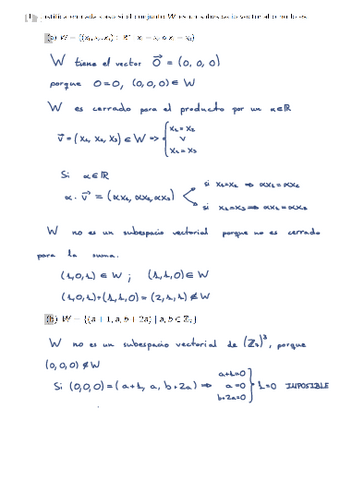 (1) Justifica en cada caso si el conjunto W es un subespacio vectorial o no lo es.
(a) W = {(x₁, x₂, x₃) ∈ ℝ³ : x₁ = x₂ ó x₁ = x₃}
W tiene el vector 0⃗ = (0, 0, 0)
porque 0=0, (0, 0, 0) ∈ W
W es cerrado para el producto por un α∈ℝ
v⃗ = (x₁, x₂, x₃) ∈ W => { x₁ = x₂ v x₁ = x₃
Si α∈ℝ
α · v⃗ = (αx₁, αx₂, αx₃)
si x₁=x₂ => αx₁=αx₂
si x₁=x₃ => αx₁=αx₃
W no es un subespacio vectorial porque no es cerrado
para la suma.
(1,0,1) ∈ W ; (1,1,0) ∈ W
(1,0,1)+(1,1,0)=(2,1,1) ∉ W
(b) W = {(a + 1, a, b + 2a) | a, b ∈ ℤ₃}
W no es un subespacio vectorial de (ℤ₃)³, porque
(0,0,0) ∉ W
Si (0,0,0) = (a+1, a, b+2a) => a+1=0 a=0 b+2a=0 } 1=0 IMPOSIBLE